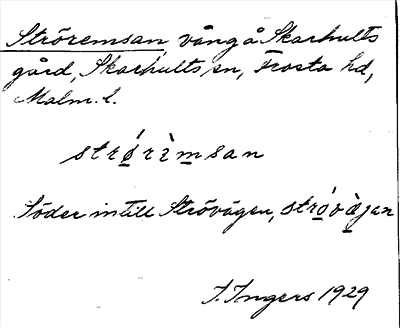 Ströremsan, vång å Skarhults
gård, Skarhults sn, Frosta hd,
Malm. l.
strǿ̱rèm̱san
Söder intill Strövägen, strǿ̱væ̱̀jan
I. Ingers 1929